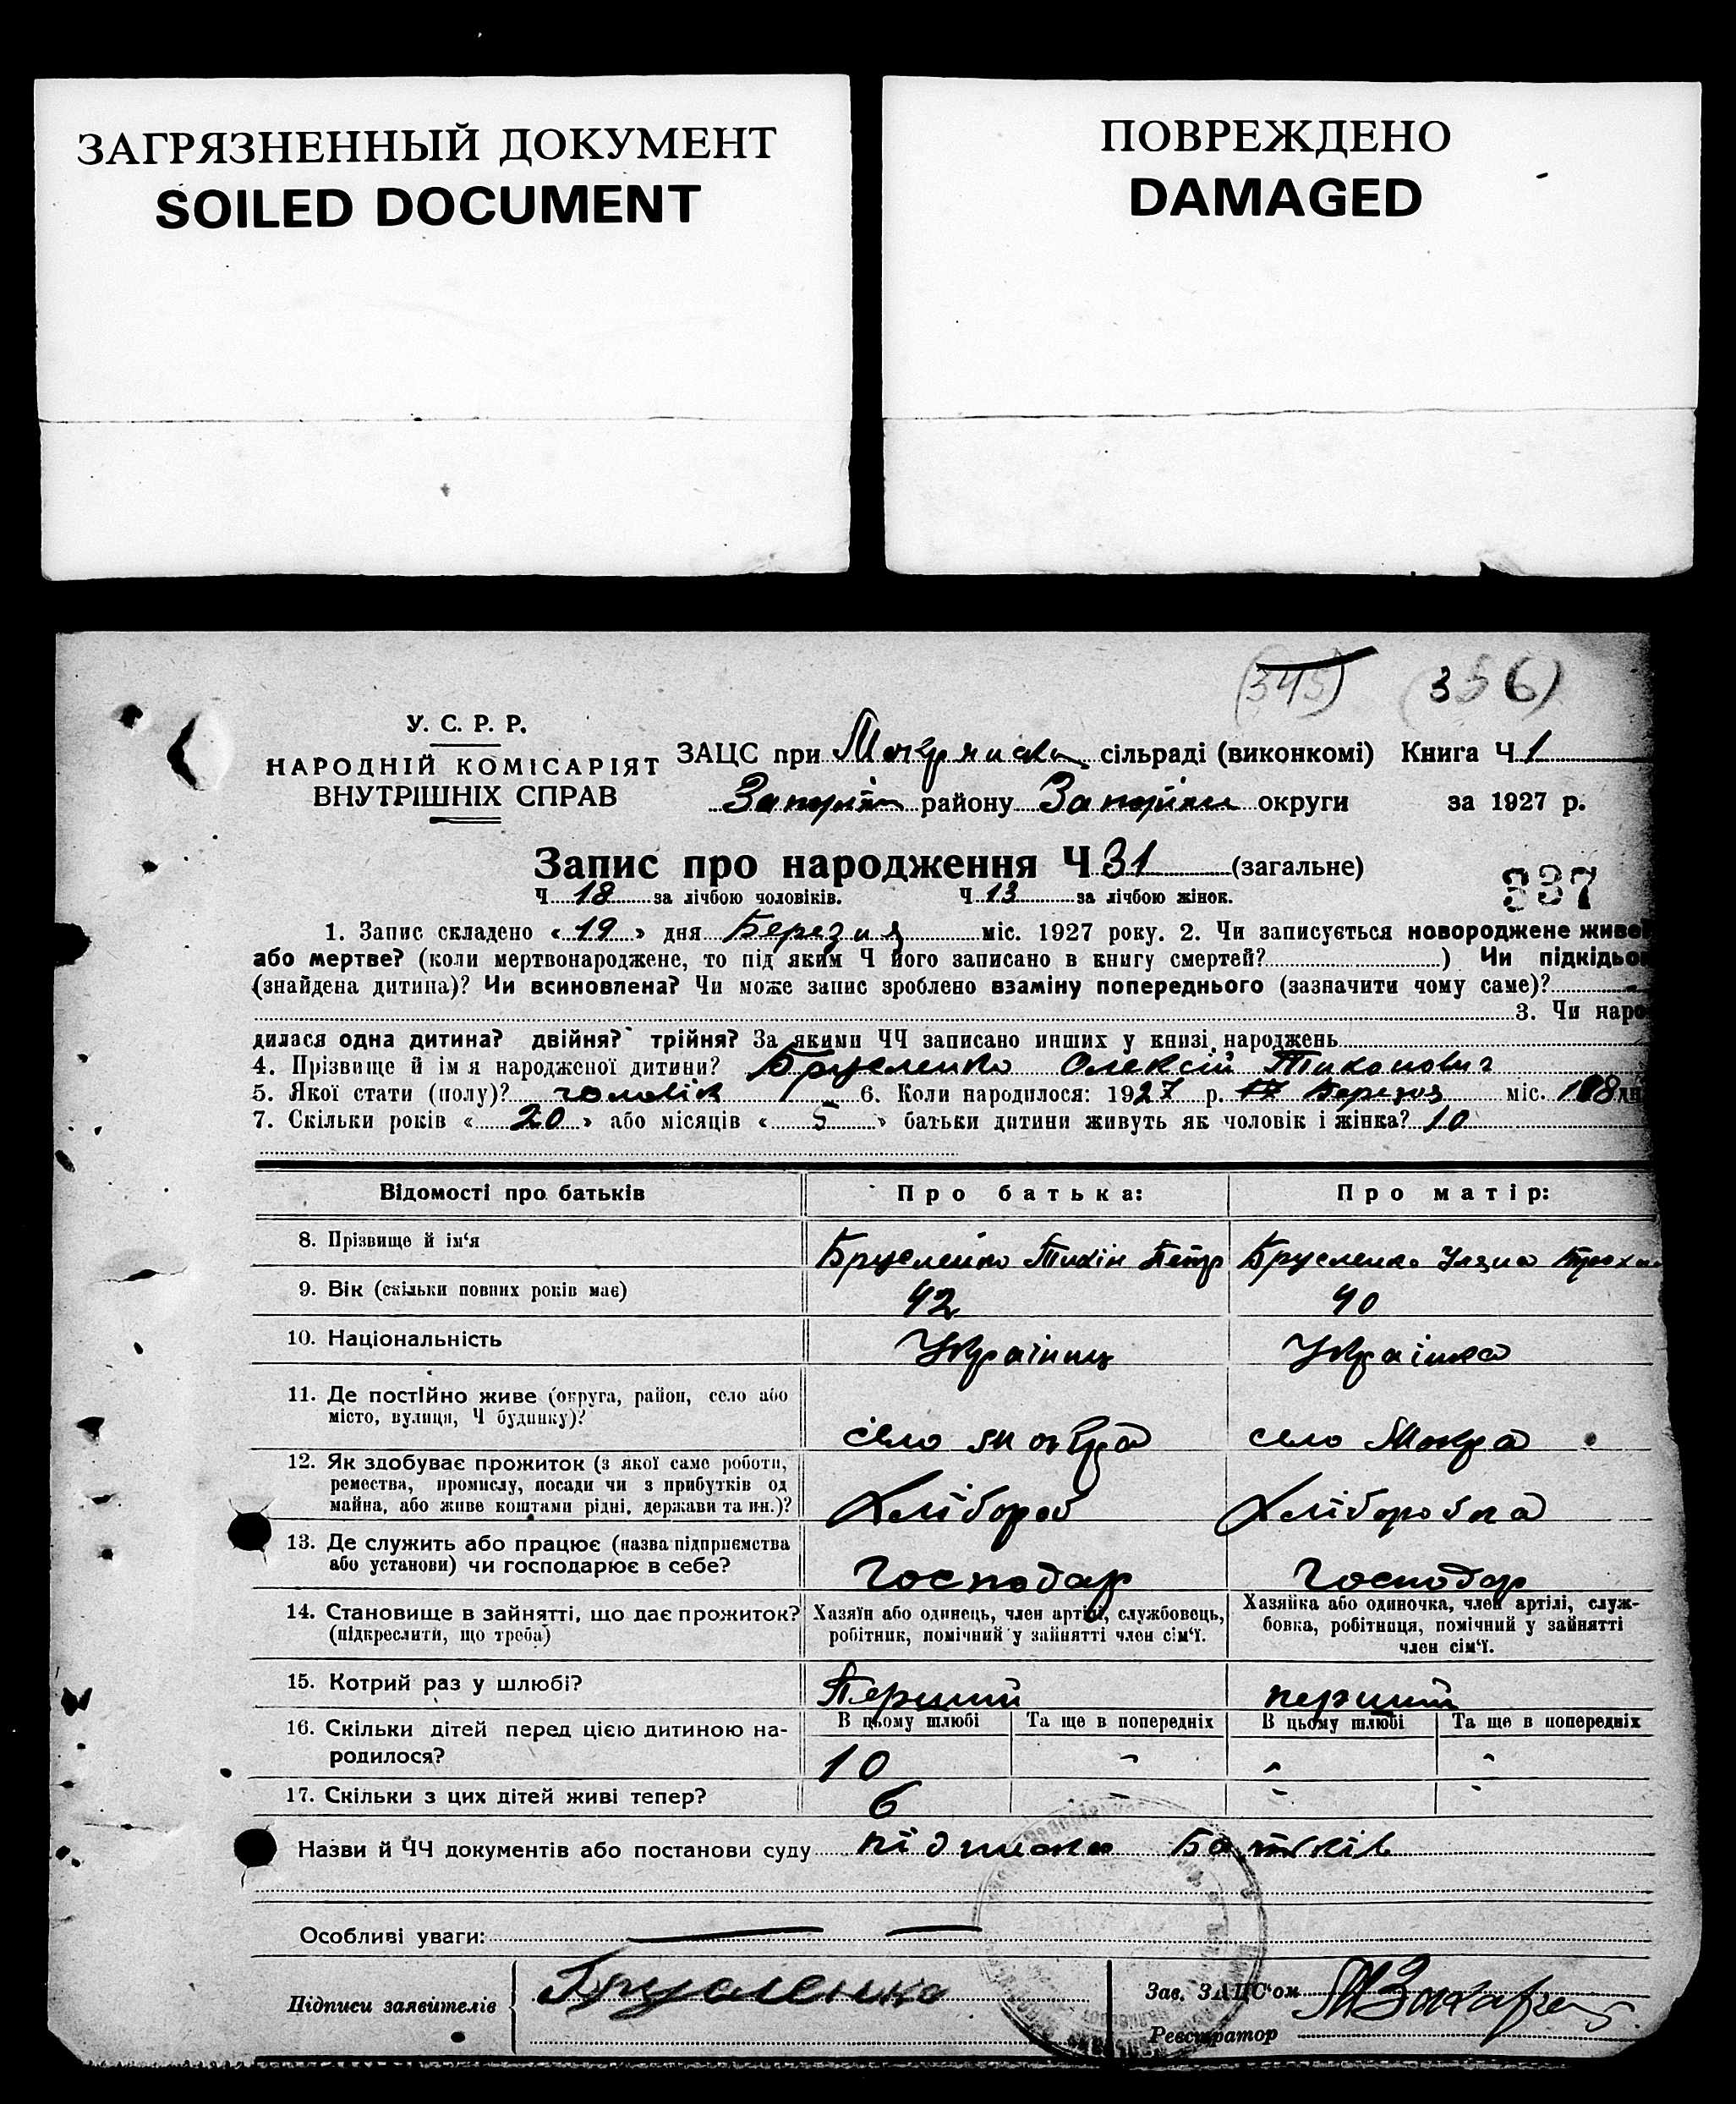 ЗАГРЯЗНЕННЫЙ ДОКУМЕНТ
SOILED DOCUMENT
ПОВРЕЖДЕНО
DAMAGED
(345) (356)
У. С. Р. Р.
НАРОДНІЙ КОМІСАРІЯТ
ВНУТРІШНІХ СПРАВ
ЗАЦС при Мокрянськ сільраді (виконкомі) Книга Ч 1
Запоріж району Запоріж округи за 1927 р.
Запис про народження Ч 31 (загальне)
337
Ч 18 за лічбою чоловіків. Ч 13 за лічбою жінок.
1. Запис складено « 19 » дня Березня міс. 1927 року. 2. Чи записується новороджене живе
або мертве? (коли мертвонароджене, то під яким Ч його записано в книгу смертей? ) Чи підкідьо
(знайдена дитина)? Чи всиновлена? Чи може запис зроблено взаміну попереднього (зазначити чому саме)?
3. Чи наро
дилася одна дитина? двійня? трійня? За якими ЧЧ записано инших у книзі народжень
4. Прізвище й ім'я народженої дитини? Бруеленко Олексій Тиханович
5. Якої стати (полу)? чоловік 6. Коли народилося: 1927 р. Березня міс. 18 дн
7. Скільки років « 20 » або місяців « 5 » батьки дитини живуть як чоловік і жінка? 10
Відомості про батьків Про батька: Про матір:
8. Прізвище й ім'я Бруеленко Тихін Петр Бруеленко Уляна
9. Вік (скільки повних років має) 42 40
10. Національність Українць Українка
11. Де постійно живе (округа, район, село або
місто, вулиця, Ч будинку)? село Мокра село Мокра
12. Як здобуває прожиток (з якої саме роботи,
ремества, промислу, посади чи з прибутків од
майна, або живе коштами рідні, держави та ин.)? Хлібороб Хліборобка
13. Де служить або працює (назва підприємства
або установи) чи господарює в себе? Господар Господар
14. Становище в зайнятті, що дає прожиток? Хазяїн або одинець, член артілі, службовець, Хазяйка або одиночка, член артілі, служ-
(підкреслити, що треба) робітник, помічний у зайнятті член сім'ї. бовка, робітниця, помічний у зайнятті
член сім'ї.
15. Котрий раз у шлюбі? Перший перший
16. Скільки дітей перед цією дитиною на- В цьому шлюбі Та ще в попередніх В цьому шлюбі Та ще в попередніх
родилося? 10 - - -
17. Скільки з цих дітей живі тепер? 6 - - -
Назви й ЧЧ документів або постанови суду підписка Батьків
Особливі уваги:
Підписи заявителів Бруеленко Зав. ЗАЦС'ом
Реєстратор